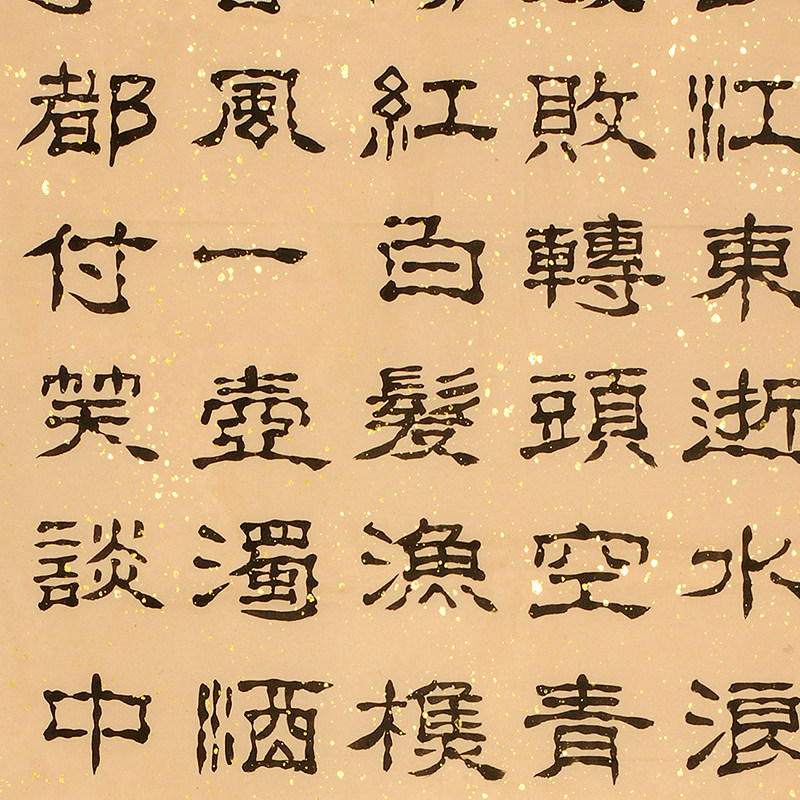 江東逝水浪
敗轉頭空青
紅白髮漁樵
風一壺濁酒
都付笑談中